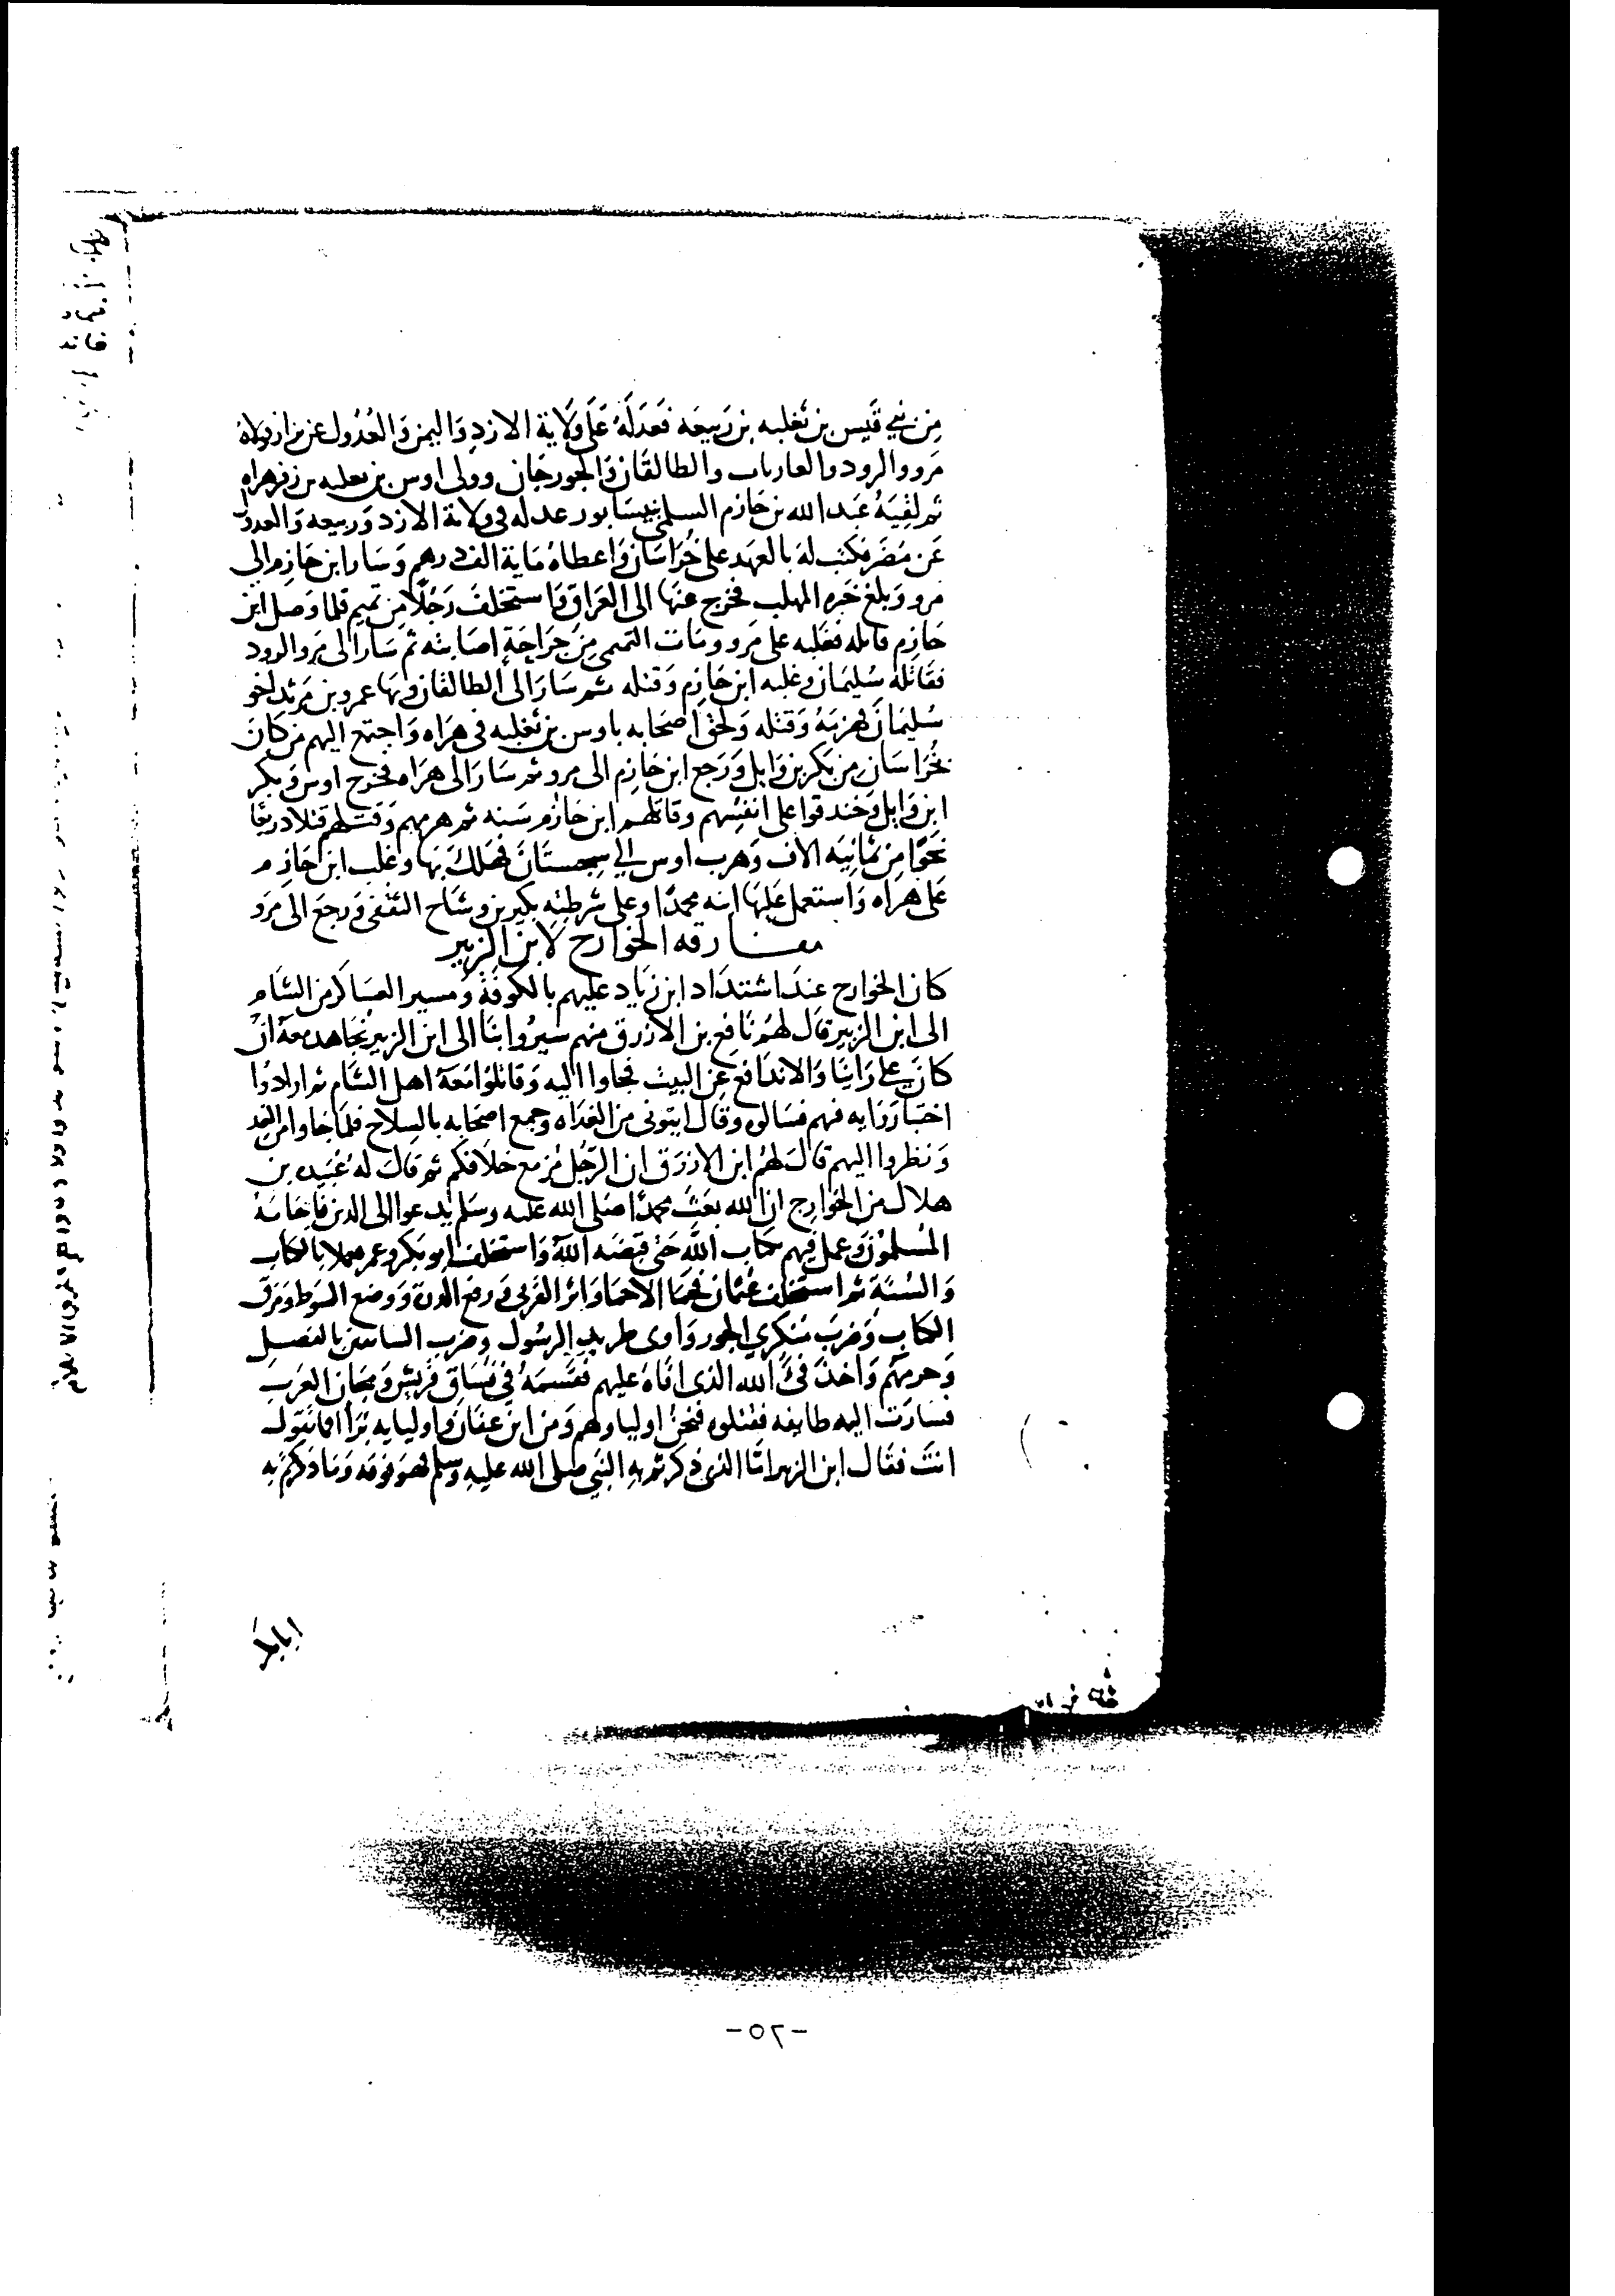 من بني قيس بن ثعلبه بن ربيعه فعدله على ولاية الازد واليمن والعدول عن نزار فولاه
مرو الرود والفارياب والطالقان والجورجان وولى اوس بن ثعلبه بن زفر هراه
ثم لقيه عبد الله بن خازم السلمي بنيسابور عدله في ولاية الازد وربيعه والعدول
عن مضر فكتب له بالعهد على خراسان واعطاه ماية الف درهم وسار ابن خازم الى
مرو وبلغ خبره المهلب فخرج عنها الى العراق واستخلف رجلا من تميم فلما وصل ابن
خازم قاتله فغلبه على مرو ومات التميمي من جراحة اصابته ثم سار الى مرو الرود
فقاتله سليمان وغلبه ابن خازم وقتله ثم سار الى الطالقان وبها عمرو بن مرثد اخو
سليمان فهزمه وقتله ولحق اصحابه باوس بن ثعلبه في هراه واجتمع اليهم من كان
بخراسان من بكر بن وايل ورجع ابن خازم الى مرو ثم سار الى هراه فخرج اوس وبكر
ابن وايل وخندقوا على انفسهم وقاتلهم ابن خازم سنه ثم هزمهم وقتلهم قتلا ذريعا
نحوا من ثمانيه الاف وهرب اوس الى سجستان فهلك بها وغلب ابن خازم
على هراه واستعمل عليها ابنه محمدا وعلى شرطته بكير بن وشاح الثقفي ورجع الى مرو
مفارقه الخوارج لابن الزبير
كان الخوارج عند اشتداد ابن زياد عليهم بالكوفة ومسير العساكر من الشام
الى ابن الزبير قال لهم نافع بن الازرق منهم سيروا بنا الى ابن الزبير نجاهد معه ان
كان على راينا والا ندافع عن البيت فجاوا اليه وقاتلوا معه اهل الشام ثم ارادوا
اختبار رايه فيهم فسالوه وقال ايتوني من الغداه وجمع اصحابه بالسلاح فلما جاوا من الغد
ونظروا اليهم قال لهم ابن الازرق ان الرجل مزمع خلافكم ثم قال له عبيد بن
هلال من الخوارج ان الله بعث محمدا صلى الله عليه وسلم يدعوا الى الدين فاجابه
المسلمون وعمل فيهم بكتاب الله حتى قبضه الله واستخلف ابو بكر وعمر فعملا بالكتاب
والسنة ثم استخلف عثمان فحما الاحما واثر القربى ورفع الدرة ووضع السوط ومزق
الكتاب وضرب منكري الجور واوى طريد الرسول وضرب السابقين بالفضل
وحرمهم واخذ فئ الله الذي افاه عليهم فقسمه في فساق قريش ومجان العرب
فسارت اليه طايفه فقتلوه فنحن اولياوهم ومن ابن عفان واوليايه برأ افما تقول
انت فقال ابن الزبير اما الذي ذكرتم به النبي صلى الله عليه وسلم فهو فوقه وما ذكرتم به
ابابكر
-٥٢-